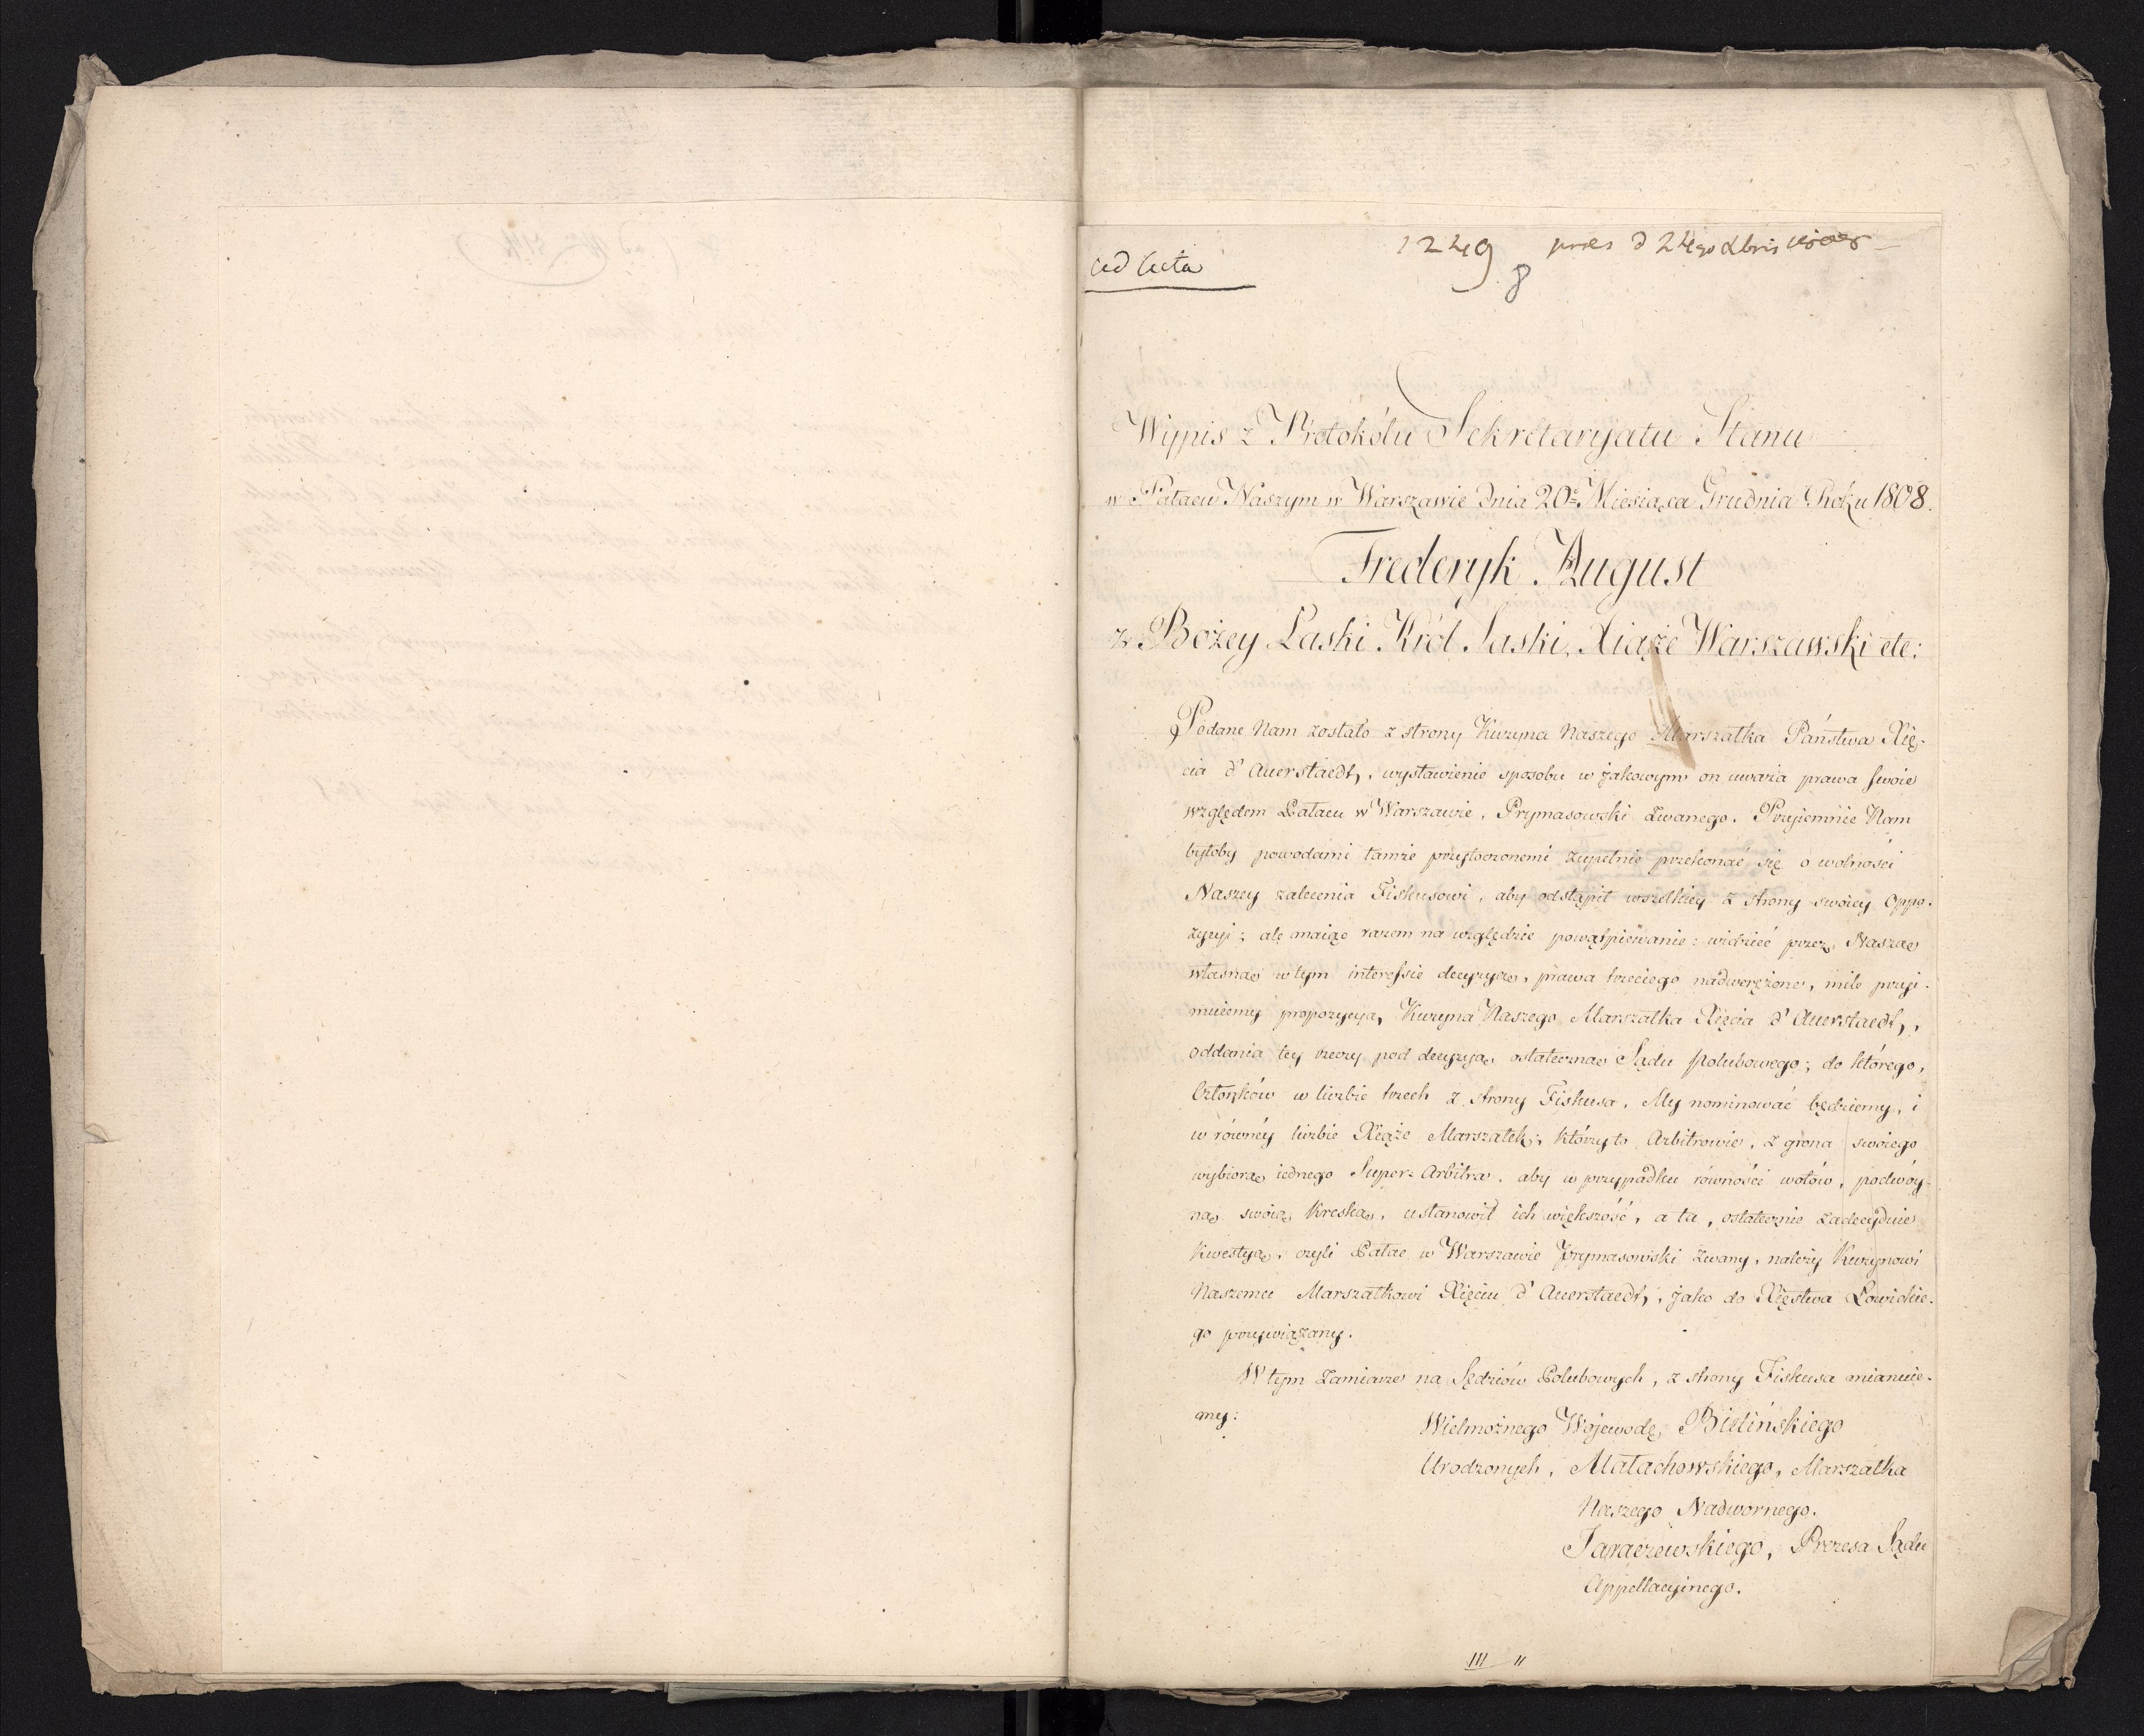 ad acta
1249 pres d 24go Xbris
8
Wypis z Protokółu Sekretaryatu Stanu
w Pałacu Naszym w Warszawie dnia 20º Miesiąca Grudnia Roku 1808.
Frederyk August
z Bożey Łaski Król Saski, Xiąże Warszawski etc:
Podane Nam zostało z strony Kuzyna Naszego Marszałka Państwa Xię-
cia d'Auerstaedt, wystawienie sposobu w jakowym on uważa prawa swoie
względem Pałacu w Warszawie, Prymasowski zwanego. Przyiemnie Nam
byłoby powodami tamże przytoczonemi zupełnie przekonać się o wolności
Naszey zalecenia Fiskusowi, aby odstąpił wszelkiey z strony swoiey oppo-
zycyi; ale maiąc razem na względzie powątpiewanie: widzieć przez Naszą
własną w tym interessie decyzyą, prawa trzeciego nadwerężone, mile przyi-
muiemy propozycyą, Kuzyna Naszego Marszałka Xięcia d'Auerstaedt,
oddania tey rzeczy pod decyzyą ostateczną Sądu Polubowego; do którego,
Członków w liczbie trzech z strony Fiskusa, My nominować będziemy, i
w równéy liczbie Xiąże Marszałek; którzy to Arbitrowie, z grona swoiego
wybiorą iednego Super-Arbitra, aby w przypadku równości wotów, podwóy-
ną swoią kreską, ustanowił ich większość, a ta, ostatecznie zadecyduie
kwestyą, czyli Pałac w Warszawie Prymasowski zwany, należy Kuzynowi
Naszemu Marszałkowi Xięciu d'Auerstaedt, jako do Xięstwa Łowickie-
go przywiązany.
W tym zamiarze na Sędziów Polubowych, z strony Fiskusa mianuie-
my:
Wielmożnego Wojewodę Bielińskiego
Urodzonych, Małachowskiego, Marszałka
Naszego Nadwornego.
Taraczewskiego, Prezesa Sądu
Appellacyinego.